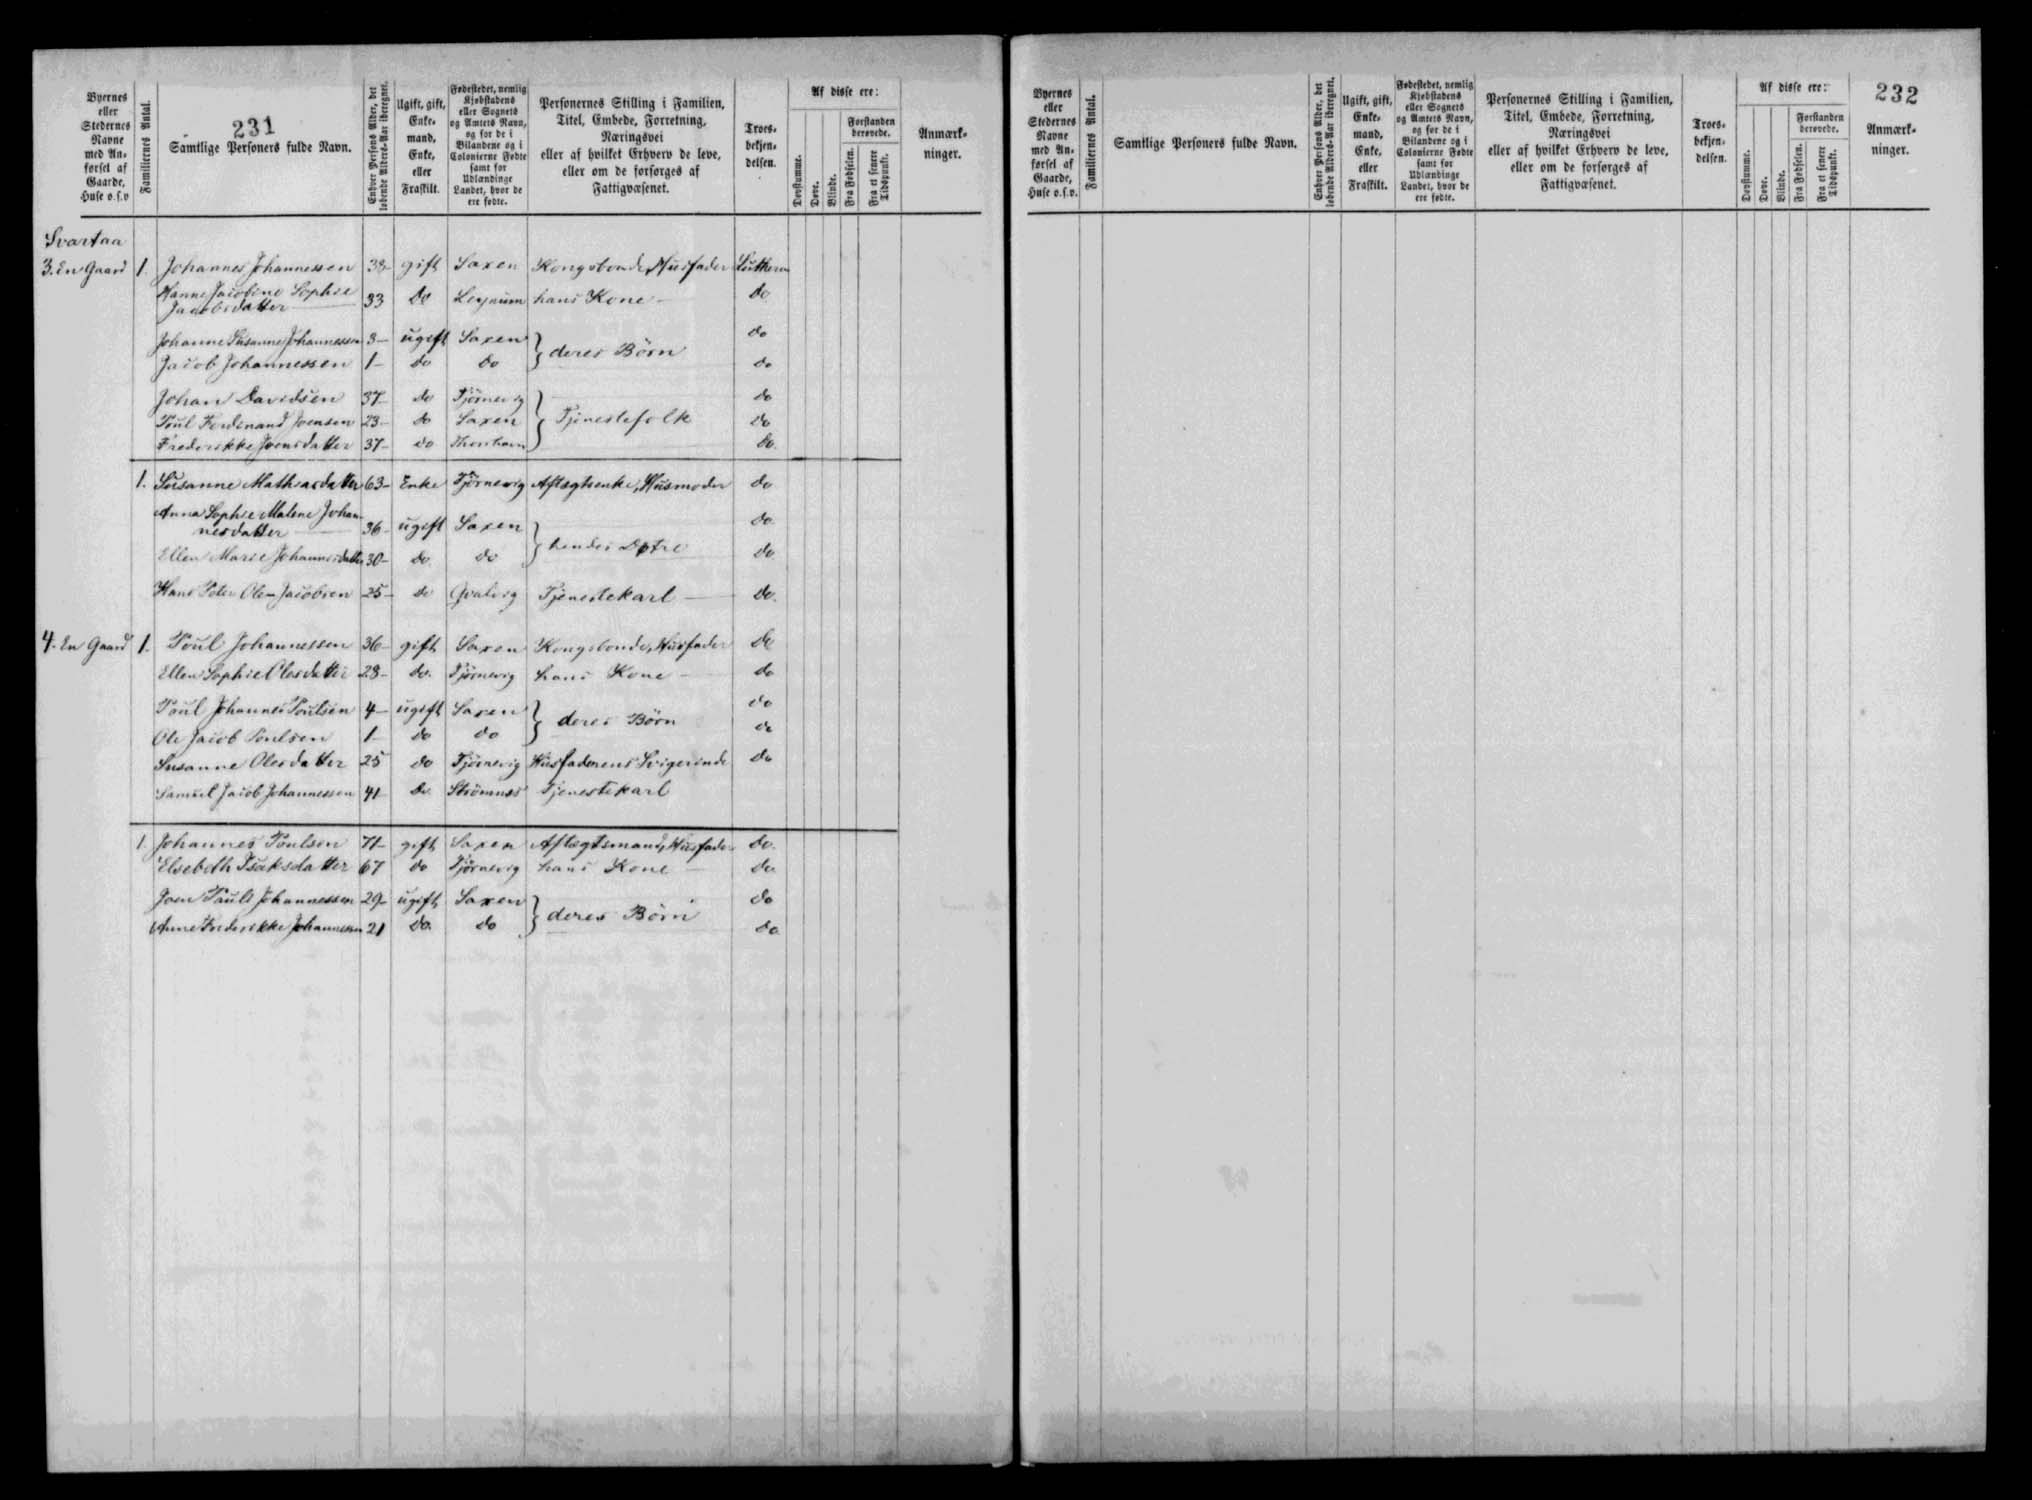 231
Byernes eller Stedernes Navne med Anførsel af Gaarde, Huse o.s.v
Familiernes Antal.
Samtlige Personers fulde Navn.
Enhver Persons Alder, det løbende Alders-Aar iberegnet.
Ugift, gift, Enkemand, Enke, eller Fraskilt.
Fødestedet, nemlig Kjøbstadens eller Sognets og Amtets Navn, og for de i Bilandene og i Colonierne Fødte samt for Udlændinge Landet, hvor de ere fødte.
Personernes Stilling i Familien, Titel, Embede, Forretning, Næringsvei eller af hvilket Erhverv de leve, eller om de forsørges af Fattigvæsenet.
Troesbekjendelsen.
Af disse ere:
Døvstumme.
Døve.
Blinde.
Forstanden berøvede.
Fra Fødselen.
Fra et senere Tidspunkt.
Anmærkninger.
Svartaa
3. En Gaard 1. Johannes Johannessen 38 gift Saxen Kongsbonde, Husfader Luthersk
Hanne Jacobine Sophie
Jacobsdatter 33 do Leynum hans Kone do
Johanne Susanne Johannessen 3 ugift Saxen do
Jacob Johannessen 1 do do } deres Børn do
Johan Davidsen 37 do Tjørnevig do
Poul Ferdinand Joensen 23 do Saxen } Tjenestefolk do
Frederikke Joensdatter 37 do Thorshavn do.
1. Susanne Mathiasdatter 63 Enke Tjørnevig Aftægtsenke, Husmoder do
Anna Sophie Malene Johan-
nesdatter 36 ugift Saxen do
Ellen Marie Johannesdatter 30 do do } hendes Døtre do
Hans Peter Ole Jacobsen 25 do Qvalvig Tjenestekarl do.
4. En Gaard 1. Poul Johannessen 36 gift Saxen Kongsbonde, Husfader do
Ellen Sophie Olesdatter 28 do. Tjørnevig hans Kone do
Poul Johannes Poulsen 4 ugift Saxen do
Ole Jacob Poulsen 1 do do } deres Børn do
Susanne Olesdatter 25 do Tjørnevig Husfaderens Svigerinde do
Samuel Jacob Johannessen 41 do. Strømnæs Tjenestekarl
1. Johannes Poulsen 71 gift Saxen Aftægtsmand, Husfader do.
Elsebeth Isaksdatter 67 do Tjørnevig hans Kone do
Joen Pauli Johannessen 29 ugift Saxen do
Anne Frederikke Johannessen 21 do. do } deres Børn do
232
Byernes eller Stedernes Navne med Anførsel af Gaarde, Huse o.s.v.
Familiernes Antal.
Samtlige Personers fulde Navn.
Enhver Persons Alder, det løbende Alders-Aar iberegnet.
Ugift, gift, Enkemand, Enke, eller Fraskilt.
Fødestedet, nemlig Kjøbstadens eller Sognets og Amtets Navn, og for de i Bilandene og i Colonierne Fødte samt for Udlændinge Landet, hvor de ere fødte.
Personernes Stilling i Familien, Titel, Embede, Forretning, Næringsvei eller af hvilket Erhverv de leve, eller om de forsørges af Fattigvæsenet.
Troesbekjendelsen.
Af disse ere:
Døvstumme.
Døve.
Blinde.
Forstanden berøvede.
Fra Fødselen.
Fra et senere Tidspunkt.
Anmærkninger.